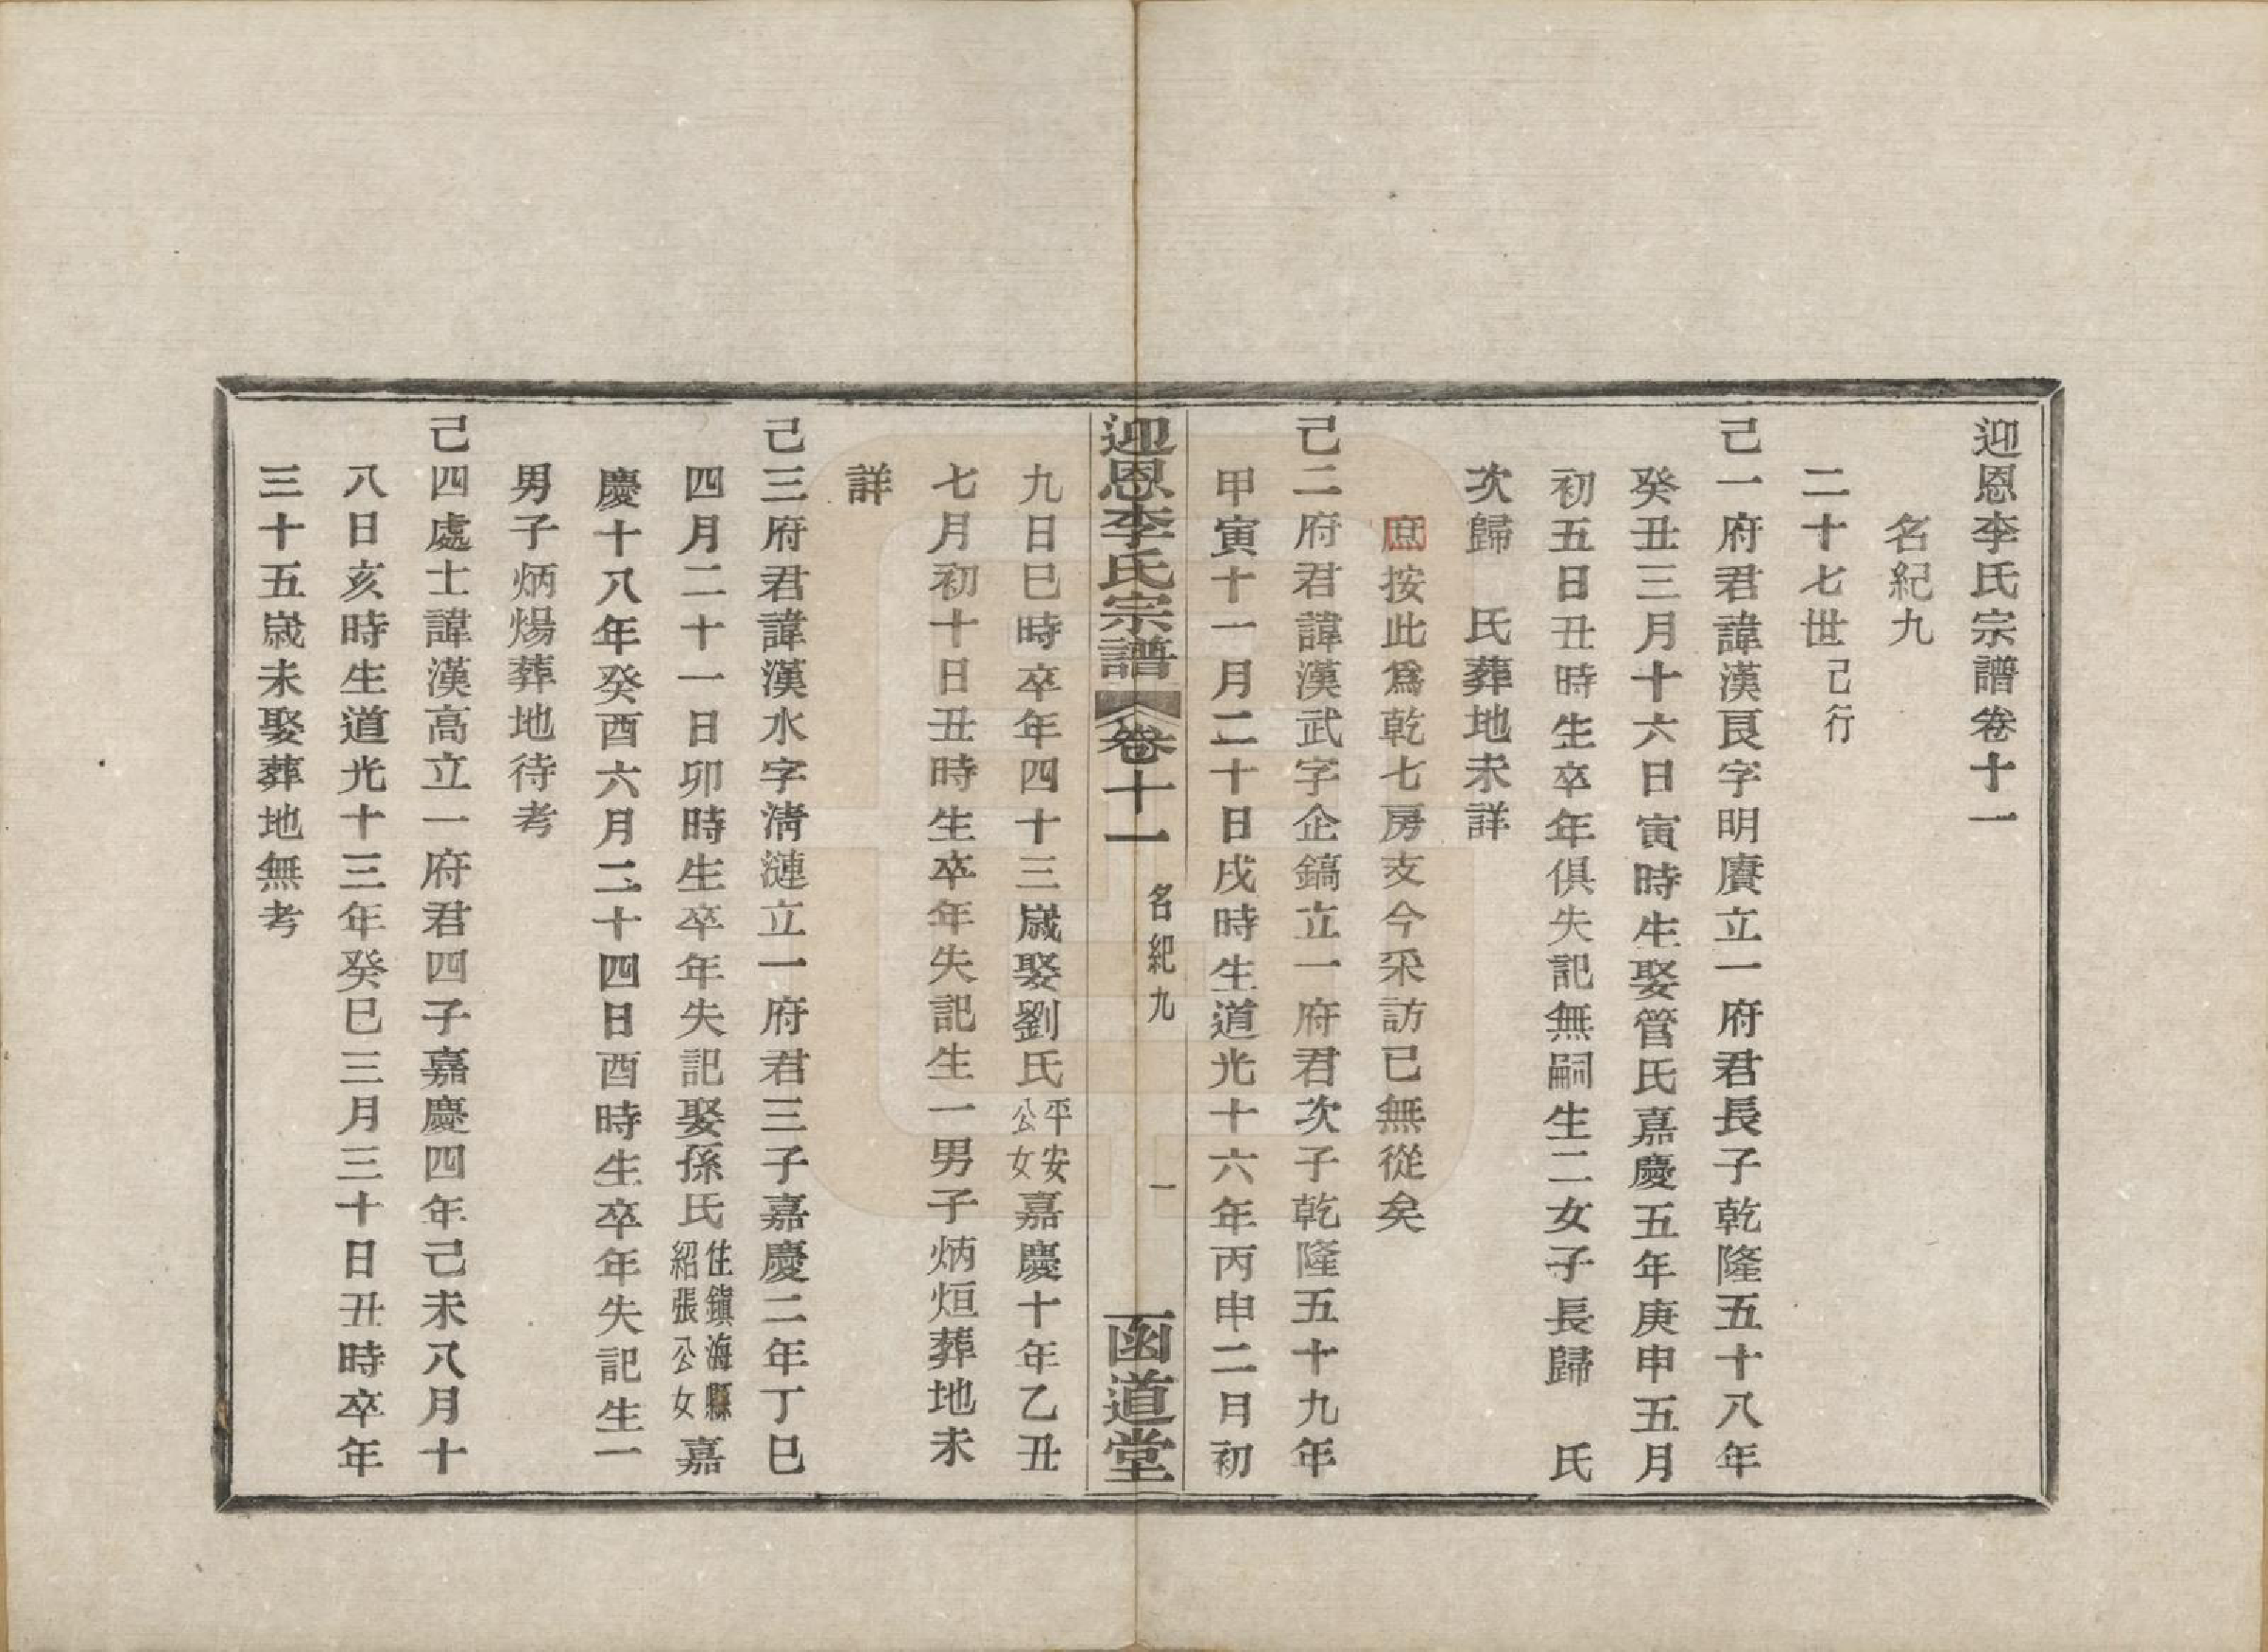 迎恩李氏宗譜卷十一
名紀九
二十七世己行
己一府君諱漢艮字明賡立一府君長子乾隆五十八年
癸丑三月十六日寅時生娶管氏嘉慶五年庚申五月
初五日丑時生卒年俱失記無嗣生二女子長歸　氏
次歸　氏葬地未詳
庶按此爲乾七房支今采訪已無從矣
己二府君諱漢武字企鎬立一府君次子乾隆五十九年
甲寅十一月二十日戌時生道光十六年丙申二月初
迎恩李氏宗譜
卷十一
名紀九
一
函道堂
九日巳時卒年四十三歲娶劉氏平安公女嘉慶十年乙丑
七月初十日丑時生卒年失記生一男子炳烜葬地未
詳
己三府君諱漢水字清漣立一府君三子嘉慶二年丁巳
四月二十一日卯時生卒年失記娶孫氏住鎮海縣紹張公女嘉
慶十八年癸酉六月二十四日酉時生卒年失記生一
男子炳煬葬地待考
己四處士諱漢高立一府君四子嘉慶四年己未八月十
八日亥時生道光十三年癸巳三月三十日丑時卒年
三十五歲未娶葬地無考